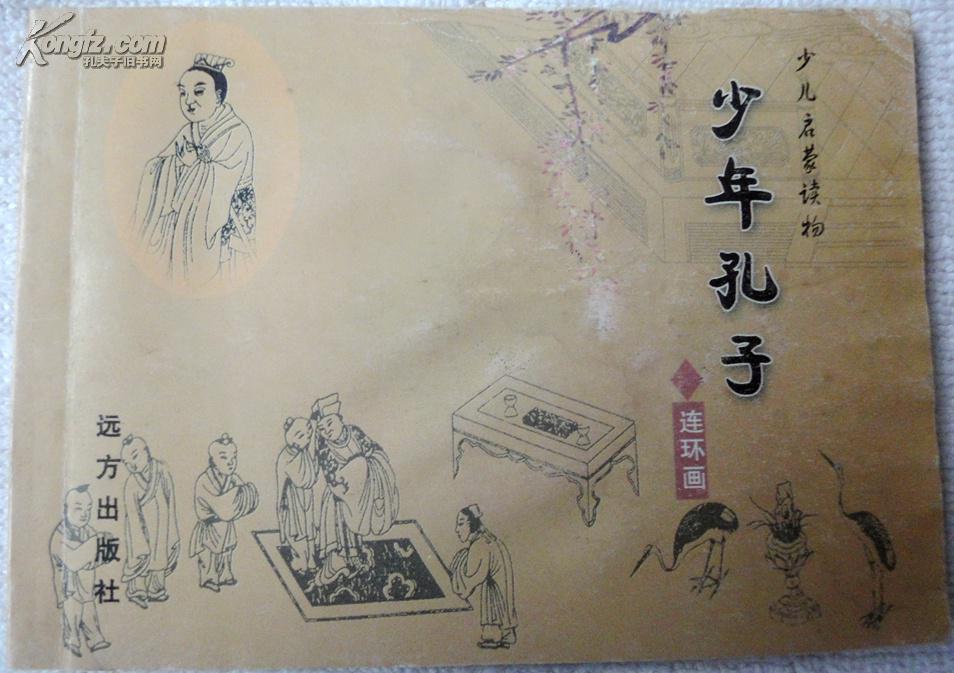 Kongfz.com
孔夫子旧书网
少儿启蒙读物
少年孔子
连环画
远方出版社